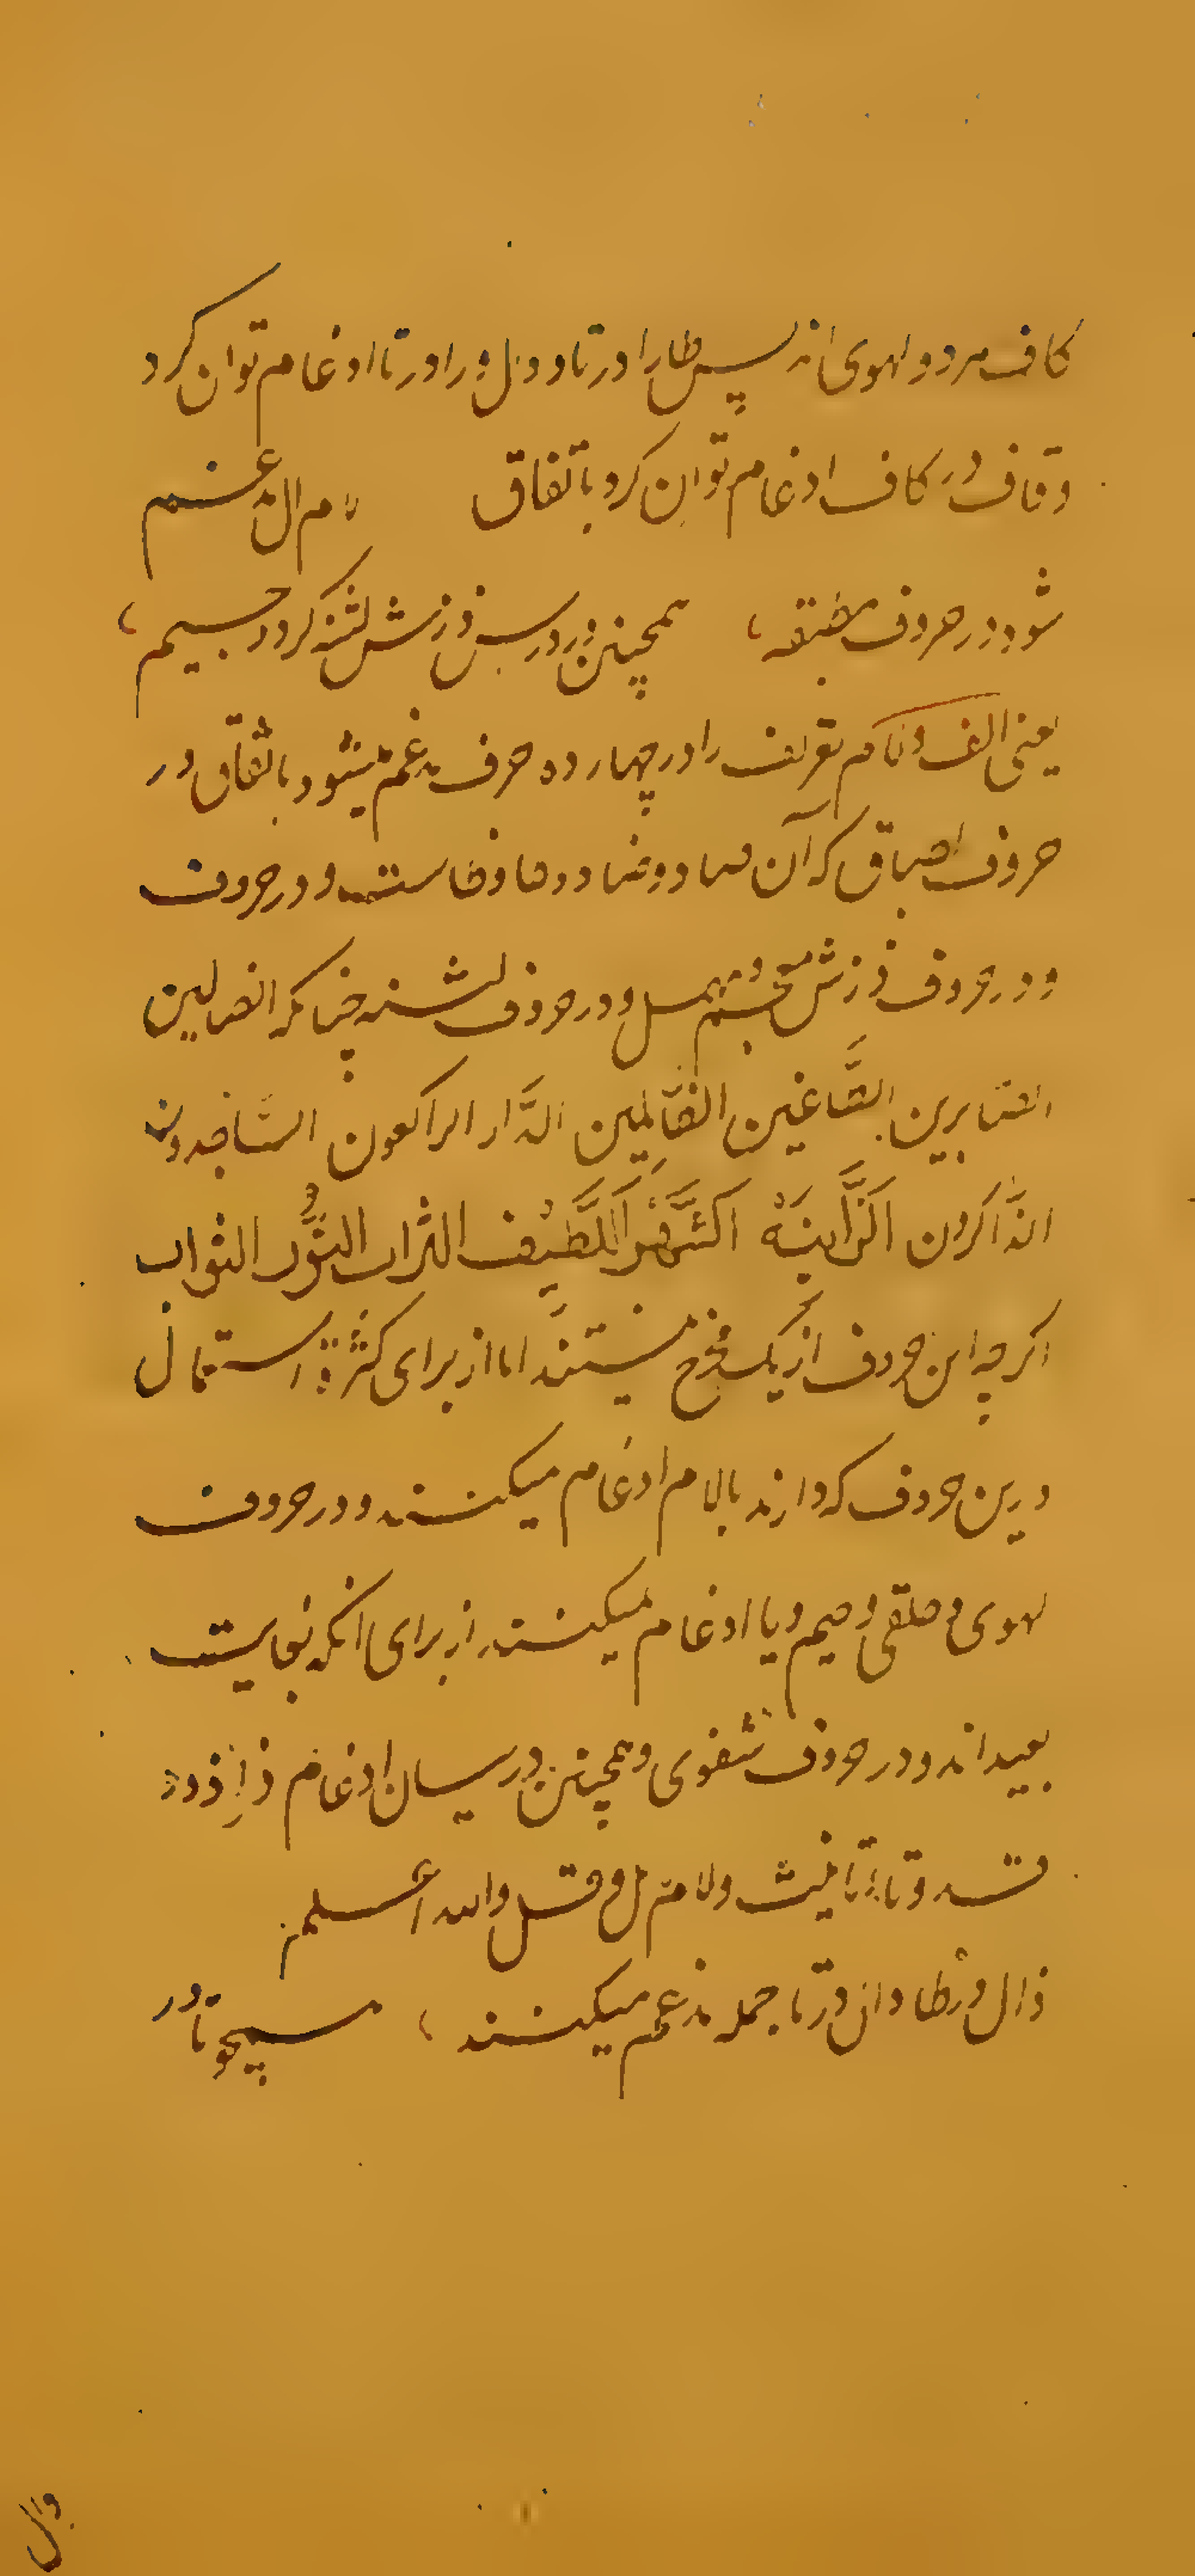 کاف هر دو لهوی اند پس طا را در تا و دال و را در تا ادغام توان کرد
و قاف در کاف ادغام توان کرد باتفاق لام ال مدغم
شود در حروف مطبقه همچنین در درس ذزش لثنه کردد جسیم
یعنی الف و لام تعریف را در چهارده حرف مدغم میشود باتفاق در
حروف اطباق که آن صاد و ضاد و طا و ظاست و در حروف
و در حروف ذزش و در حروف لثنه چنانکه الضالین
الصّابرین الطّاغین الظّالمین الدَّار الراکعون السّاجدون
الذَّاکرون الزَّانیَة اللَّطِیف التراب النُّور الثواب
اکرچه این حروف از یک مخرج نیستند اما از برای کثرة استعمال
درین حروف که دارند بالام ادغام میکنند و در حروف
لهوی و حلقی و جیم و یا ادغام میکنند از برای انکه بغایت
بعید اند و در حروف شفوی و همچنین در سان ادغام ذال اذ و دال
قد و تاء تانیث و لام هل و قل والله اعلم
ذال و ظا دان در تا جمله مدغم میکنند همچو تا در
دال